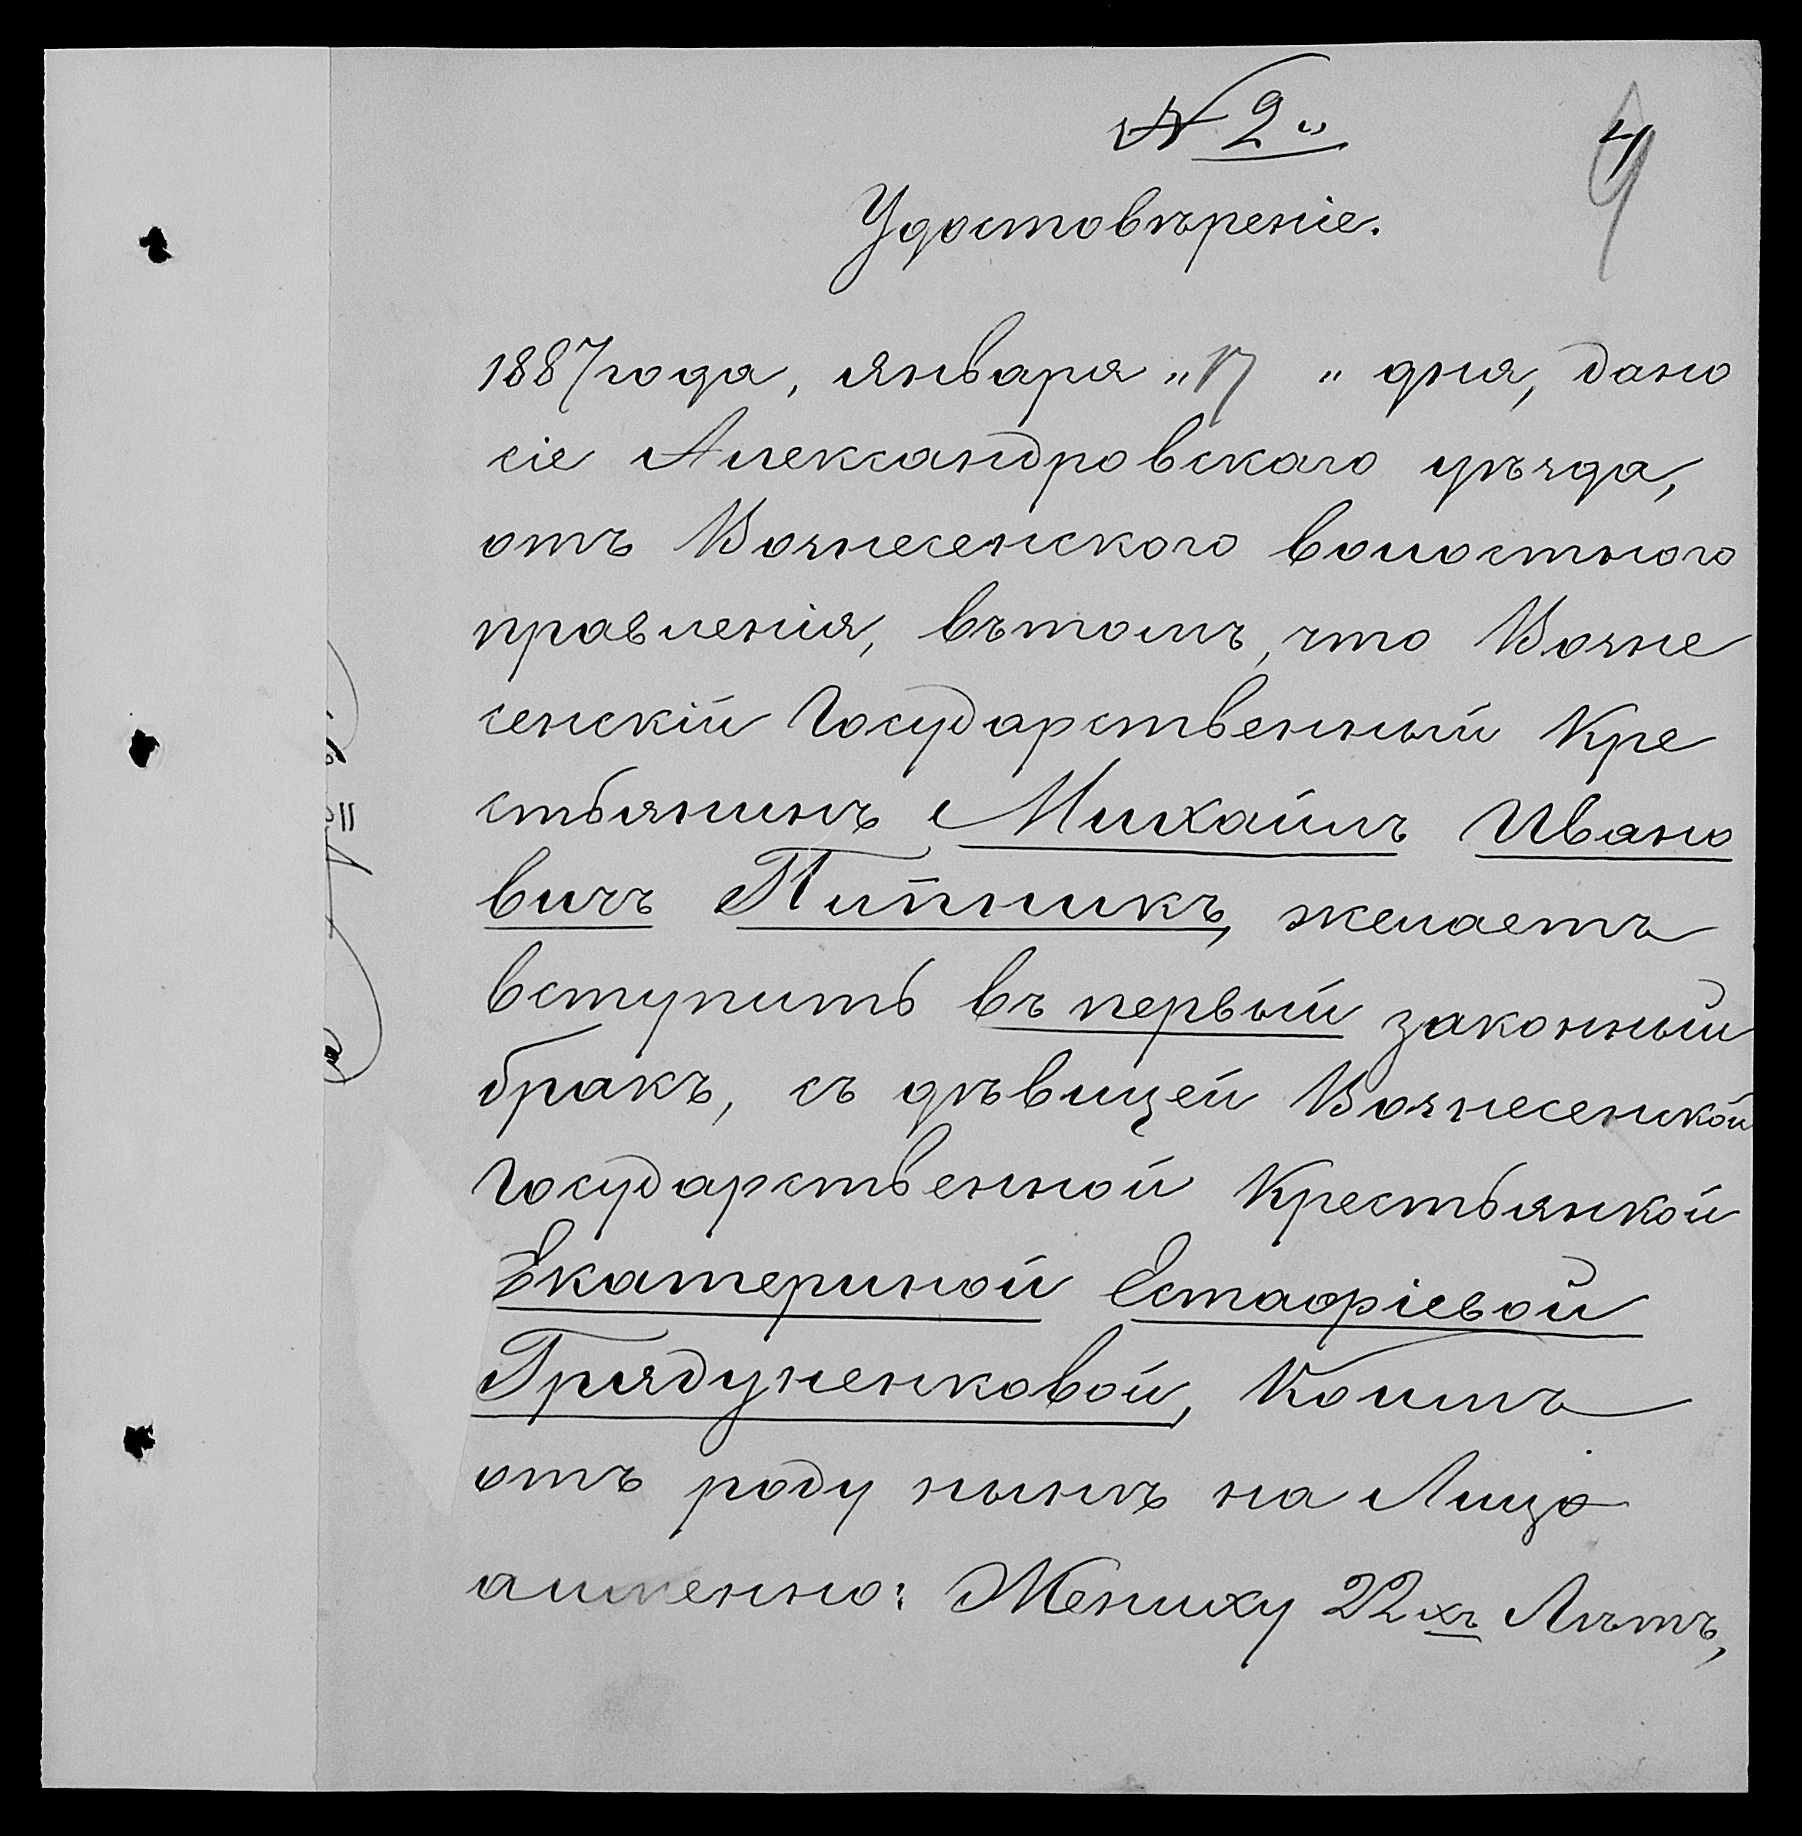 № 2й
4
9
Удостовѣреніе.
1887 года, января „17 " дня, дано
сіе Александровскаго уѣзда,
отъ Вознесенского волостного
правленія, въ томъ, что Возне
сенскій Государственный Кре
стьянинъ Михаилъ Ивано
вичъ Пипникъ, желаетъ
вступить въ первый законный
бракъ, съ дѣвицей Вознесенской
Государственной Крестьянкой
Екатериной Естафіевой
Грядуненковой, Коимъ
отъ роду нынѣ на Лицо
аименно: Жениху 22хъ Лѣтъ,